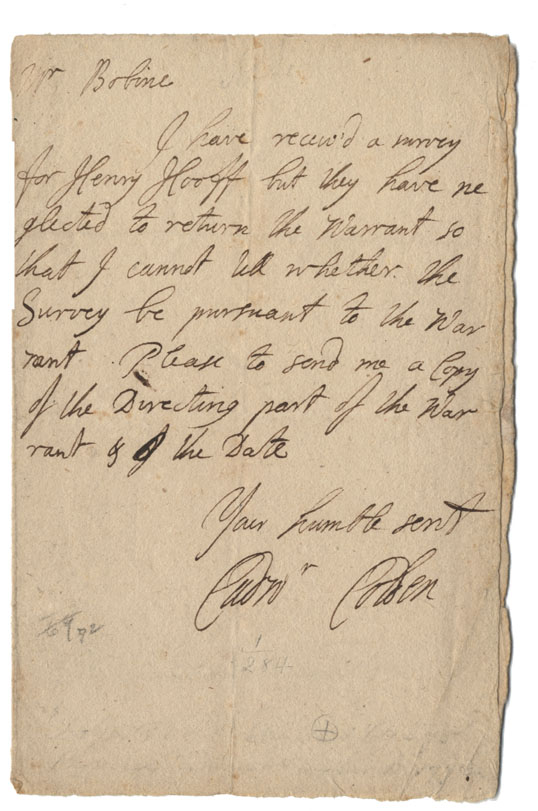 Mr Bobine
I have receiv'd a survey
for Henry Hooff but they have ne
glected to return the Warrant so
that I cannot tell whether the
Survey be pursuant to the War
rant. Please to send me a Copy
of the Directing part of the War
rant & of the Date
Your humble servt
Cadwr Colden
1
284